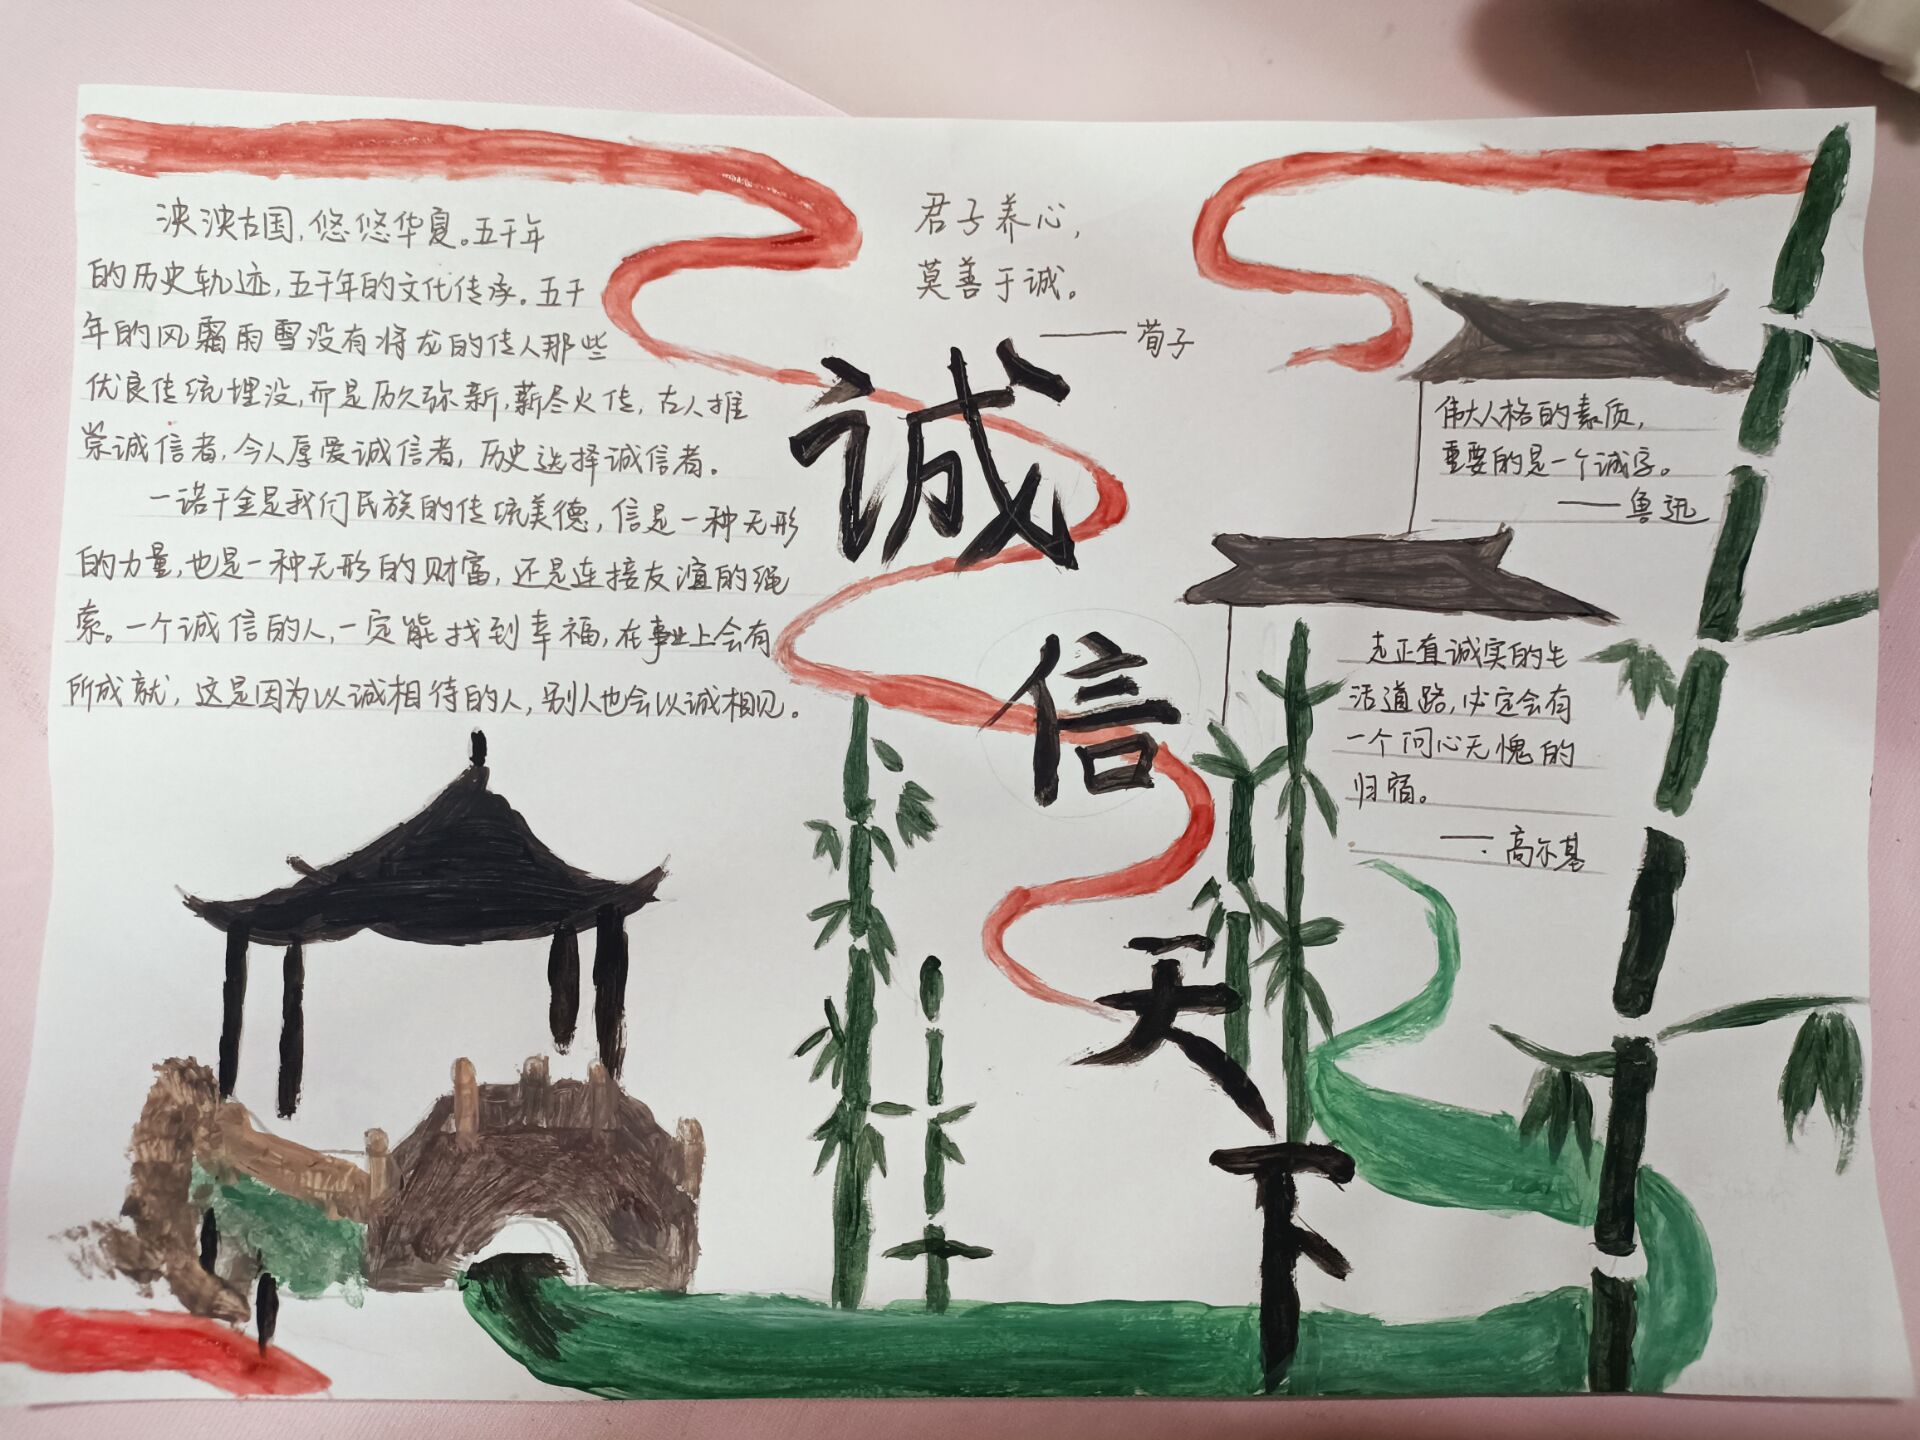 泱泱古国，悠悠华夏。五千年
的历史轨迹，五千年的文化传承。五千
年的风霜雨雪没有将龙的传人那些
优良传统埋没，而是历久弥新，薪尽火传，古人推
崇诚信者，今人厚爱诚信者，历史选择诚信者。
一诺千金是我们民族的传统美德，信是一种无形
的力量，也是一种无形的财富，还是连接友谊的绳
索。一个诚信的人，一定能找到幸福，在事业上会有
所成就，这是因为以诚相待的人，别人也会以诚相见。
君子养心，
莫善于诚。
——荀子
诚
信
天
下
伟大人格的素质，
重要的是一个诚字。
——鲁迅
走正直诚实的生
活道路，必定会有
一个问心无愧的
归宿。
——高尔基